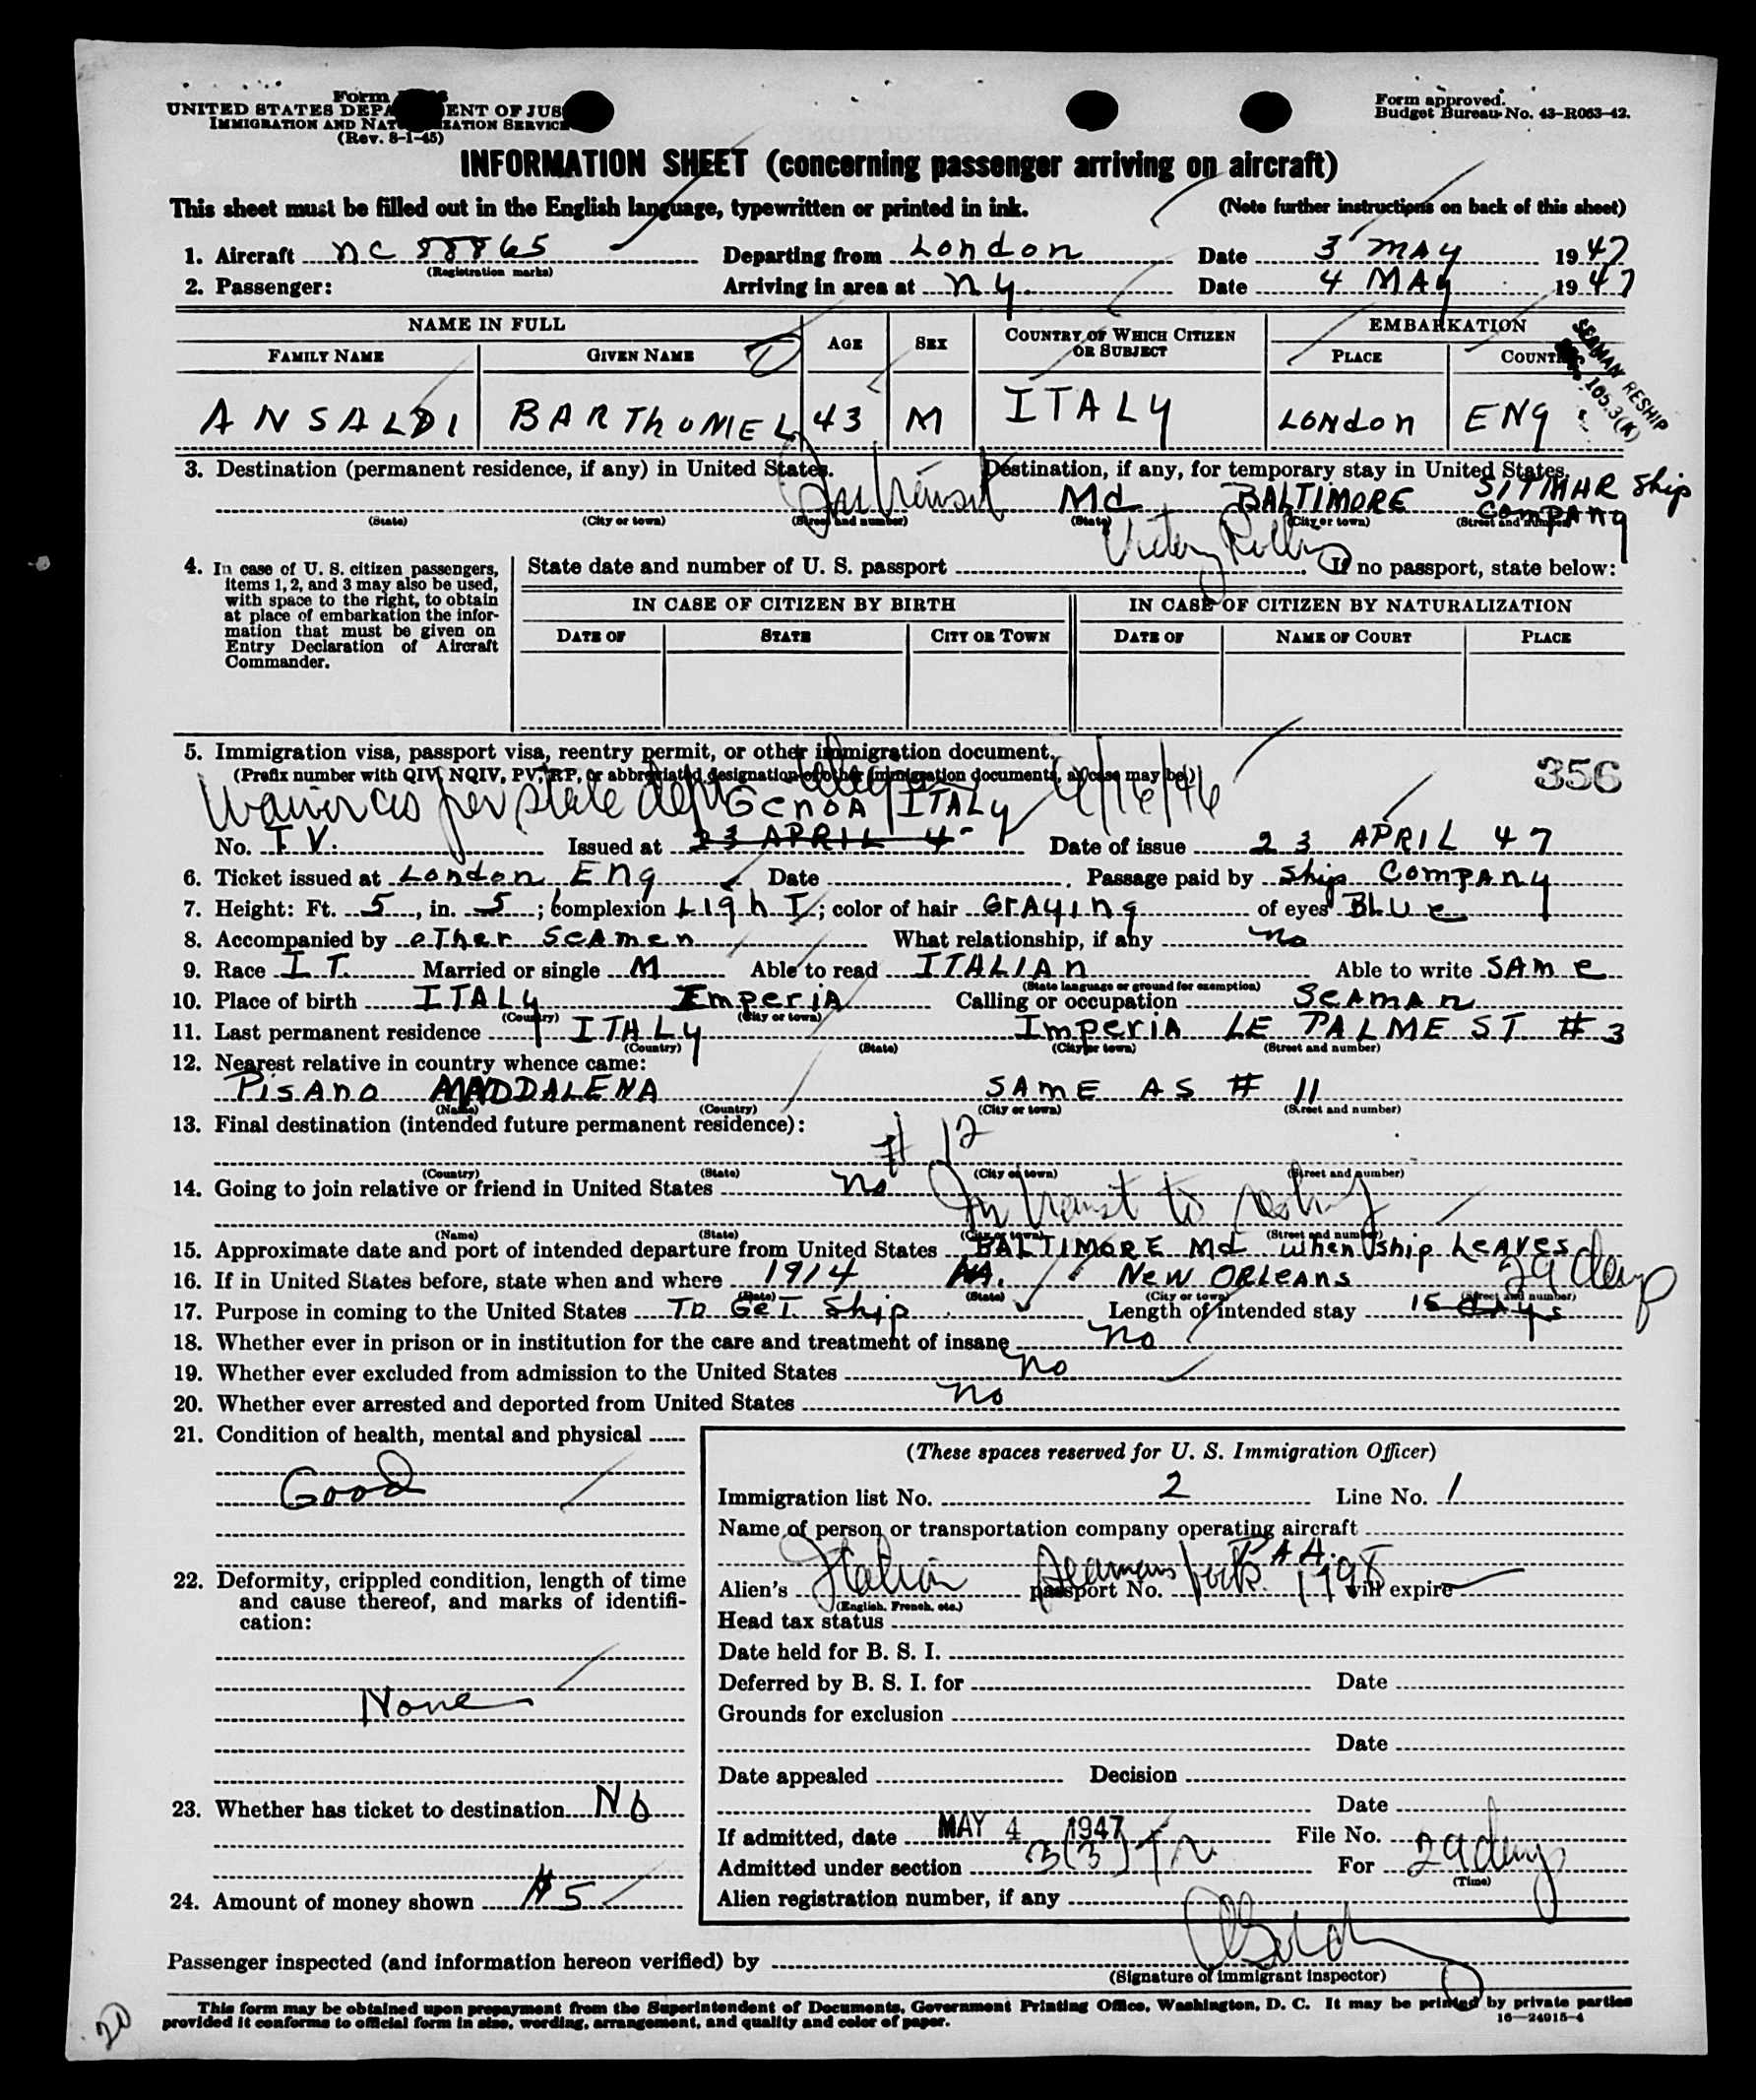 Form
UNITED STATES DEPA ENT OF JUS
IMMIGRATION AND NAT ZATION SERVICE
(Rev. 8-1-45)
Form approved.
Budget Bureau No. 43-R063-42.
INFORMATION SHEET (concerning passenger arriving on aircraft)
This sheet must be filled out in the English language, typewritten or printed in ink. (Note further instructions on back of this sheet)
1. Aircraft NC 88865 Departing from London Date 3 MAY 1947
(Registration marks)
2. Passenger: Arriving in area at NY Date 4 MAY 1947
NAME IN FULL AGE SEX COUNTRY OF WHICH CITIZEN OR SUBJECT EMBARKATION
FAMILY NAME GIVEN NAME PLACE COUNT
SEAMAN RESHIP
105.3(K)
ANSALDI BARTHOMEL 43 M ITALY LONDON ENG
3. Destination (permanent residence, if any) in United States. Destination, if any, for temporary stay in United States.
In transit Md BALTIMORE SITMAR Ship Company
(State) (City or town) (Street and number) (State) (City or town) (Street and number)
Victory
4. In case of U. S. citizen passengers, items 1, 2, and 3 may also be used, with space to the right, to obtain at place of embarkation the information that must be given on Entry Declaration of Aircraft Commander.
State date and number of U. S. passport If no passport, state below:
IN CASE OF CITIZEN BY BIRTH IN CASE OF CITIZEN BY NATURALIZATION
DATE OF STATE CITY OR TOWN DATE OF NAME OF COURT PLACE
5. Immigration visa, passport visa, reentry permit, or other immigration document.
(Prefix number with QIV, NQIV, PV, RP, or abbreviated designation of other immigration documents, as case may be.)
356
Waiver as per state dept GENOA ITALY 4/16/46
No. T.V. Issued at 23 APRIL 4 Date of issue 23 APRIL 47
6. Ticket issued at London Eng Date Passage paid by Ship Company
7. Height: Ft. 5, in. 5; complexion Light; color of hair Graying of eyes Blue
8. Accompanied by other seamen What relationship, if any no
9. Race IT. Married or single M Able to read ITALIAN Able to write SAME
(State language or ground for exemption)
10. Place of birth ITALY Imperia Calling or occupation Seaman
(Country) (City or town)
11. Last permanent residence ITALY Imperia LE PALME ST # 3
(Country) (State) (City or town) (Street and number)
12. Nearest relative in country whence came:
PISANO MADDALENA SAME AS # 11
(Name) (Country) (City or town) (Street and number)
13. Final destination (intended future permanent residence):
# 12
(Country) (State) (City or town) (Street and number)
14. Going to join relative or friend in United States no
In transit to reship
(Name) (State) (City or town) (Street and number)
15. Approximate date and port of intended departure from United States BALTIMORE Md when ship leaves
16. If in United States before, state when and where 1914 NEW ORLEANS 29 days
(Date) (State) (City or town) (Street and number)
17. Purpose in coming to the United States To Get Ship Length of intended stay 15 days
18. Whether ever in prison or in institution for the care and treatment of insane no
19. Whether ever excluded from admission to the United States no
20. Whether ever arrested and deported from United States no
21. Condition of health, mental and physical
Good
22. Deformity, crippled condition, length of time and cause thereof, and marks of identification:
None
23. Whether has ticket to destination No
24. Amount of money shown $5
(These spaces reserved for U. S. Immigration Officer)
Immigration list No. 2 Line No. 1
Name of person or transportation company operating aircraft
P A A.
Alien's Italian Seamans book passport No. 1798 will expire
(English, French, etc.)
Head tax status
Date held for B. S. I.
Deferred by B. S. I. for Date
Grounds for exclusion
Date
Date appealed Decision
Date
If admitted, date MAY 4 1947 File No.
Admitted under section 3(3) TR For 29 days
(Time)
Alien registration number, if any
Passenger inspected (and information hereon verified) by
(Signature of immigrant inspector)
This form may be obtained upon prepayment from the Superintendent of Documents, Government Printing Office, Washington, D. C. It may be printed by private parties
provided it conforms to official form in size, wording, arrangement, and quality and color of paper.
16—24915-4
20